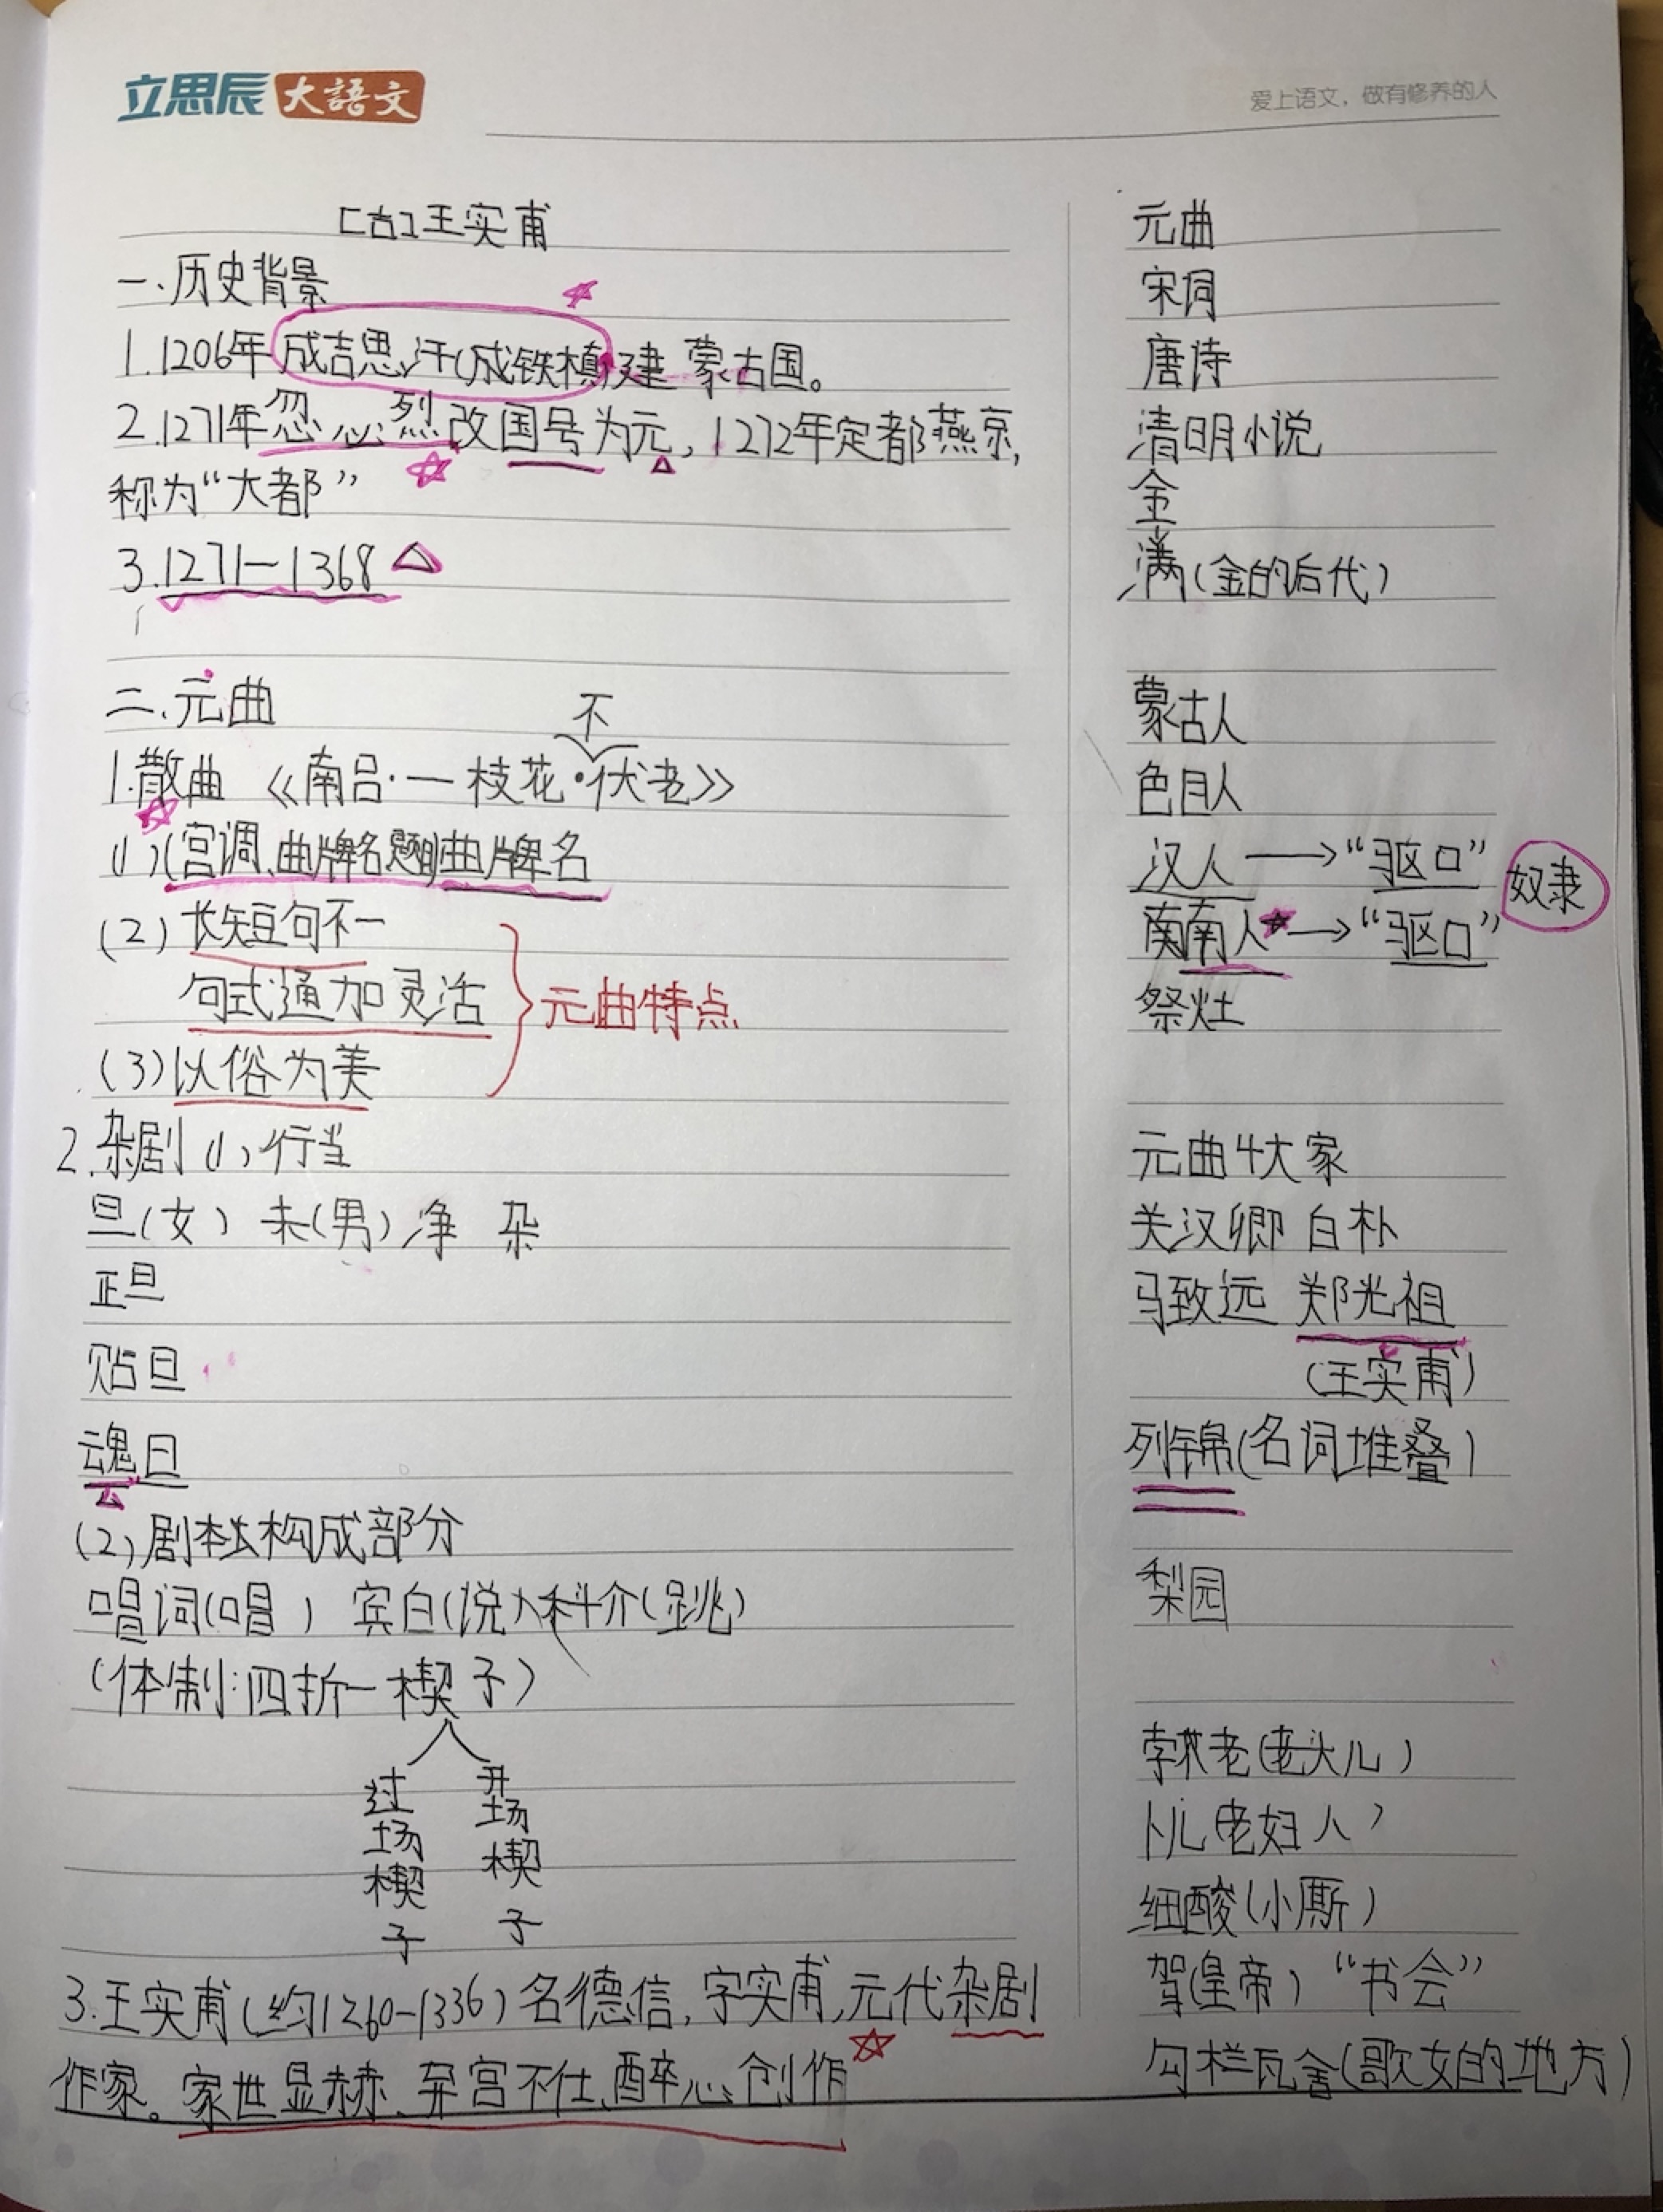 立思辰 大語文
爱上语文，做有修养的人
[古]王实甫
一、历史背景
1.1206年成吉思汗(成铁槙)建蒙古国。
2.1271年忽必烈改国号为元，1272年定都燕京，
称为“大都”
3.1271—1368
二、元曲
不
1.散曲《南吕·一枝花·伏老》
(1)(宫调、曲牌名题)曲牌名
(2)长短句不一
句式通加灵活
元曲特点
(3)以俗为美
2.杂剧(1)行当
旦(女) 末(男) 净 杂
正旦
贴旦
魂旦
(2)剧本构成部分
唱词(唱) 宾白(说)科介(跳)
(体制:四折一楔子)
过场楔子
开场楔子
3.王实甫(约1260-1336)名德信，字实甫，元代杂剧
作家。家世显赫、弃宫不仕、醉心创作
元曲
宋词
唐诗
清明小说
金
满(金的后代)
蒙古人
色目人
汉人→“驱口”
奴隶
南人→“驱口”
祭灶
元曲4大家
关汉卿 白朴
马致远 郑光祖
(王实甫)
列锦(名词堆叠)
梨园
孛老(老头儿)
卜儿(老妇人)
细酸(小厮)
驾(皇帝) “书会”
勾栏瓦舍(歌女的地方)